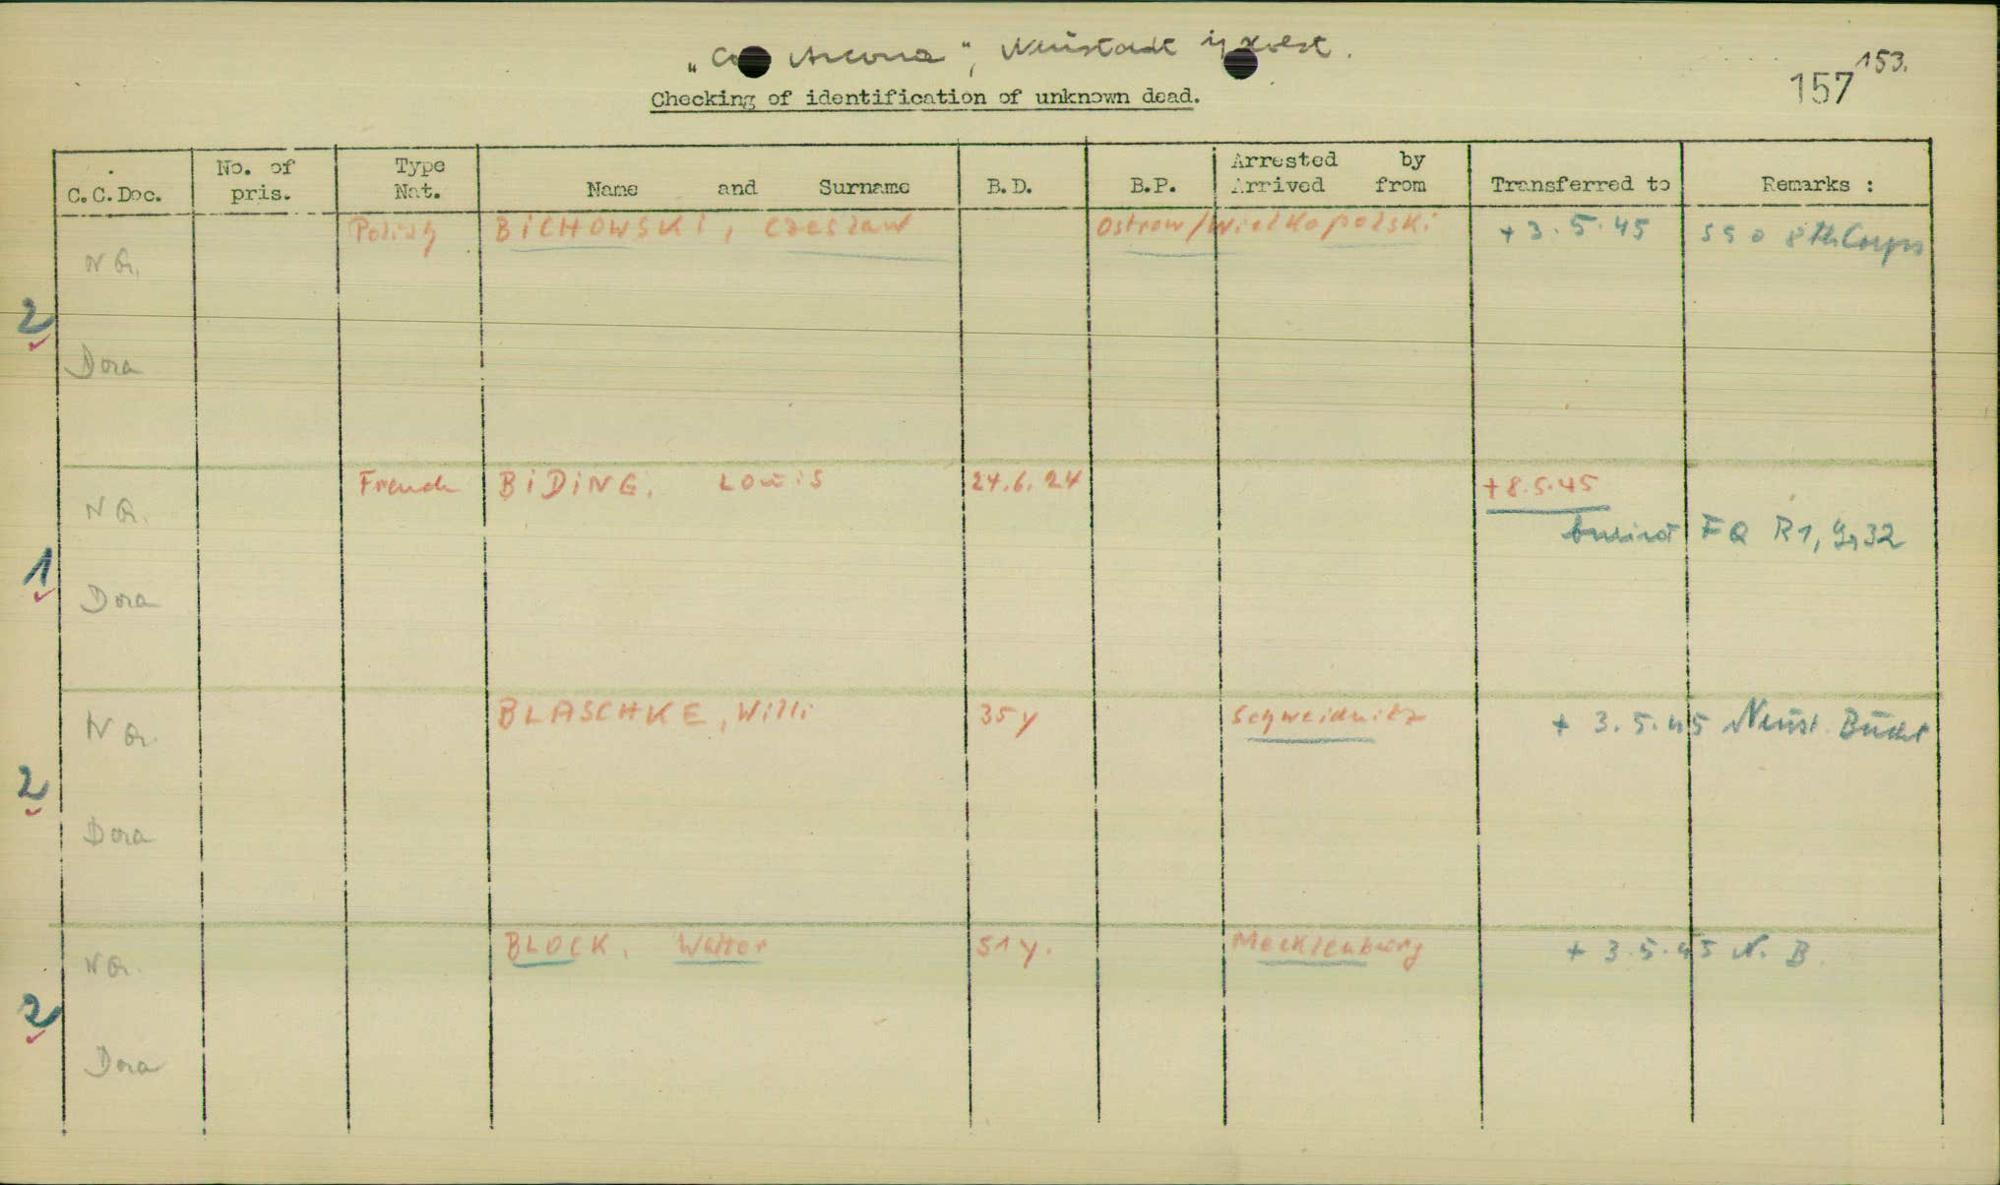 „ Arcona“, Neustadt i/Holst.
153.
157
Checking of identification of unknown dead.
C.C.Doc. No. of pris. Type Nat. Name and Surname B.D. B.P. Arrested by Arrived from Transferred to Remarks :
Polish BICHOWSKI, Czesław Ostrow/Wielkopolski + 3.5.45 8th Corps
2
Dora
French BIDING, Louis 24.6.24 +8.5.45
buried FQ R1, Gr 32
1
Dora
BLASCHKE, Willi 35 y Schweidnitz + 3.5.45 Neust. Bucht
2
Dora
BLOCK, Walter 51 y. Mecklenburg + 3.5.45 N. B.
2
Dora